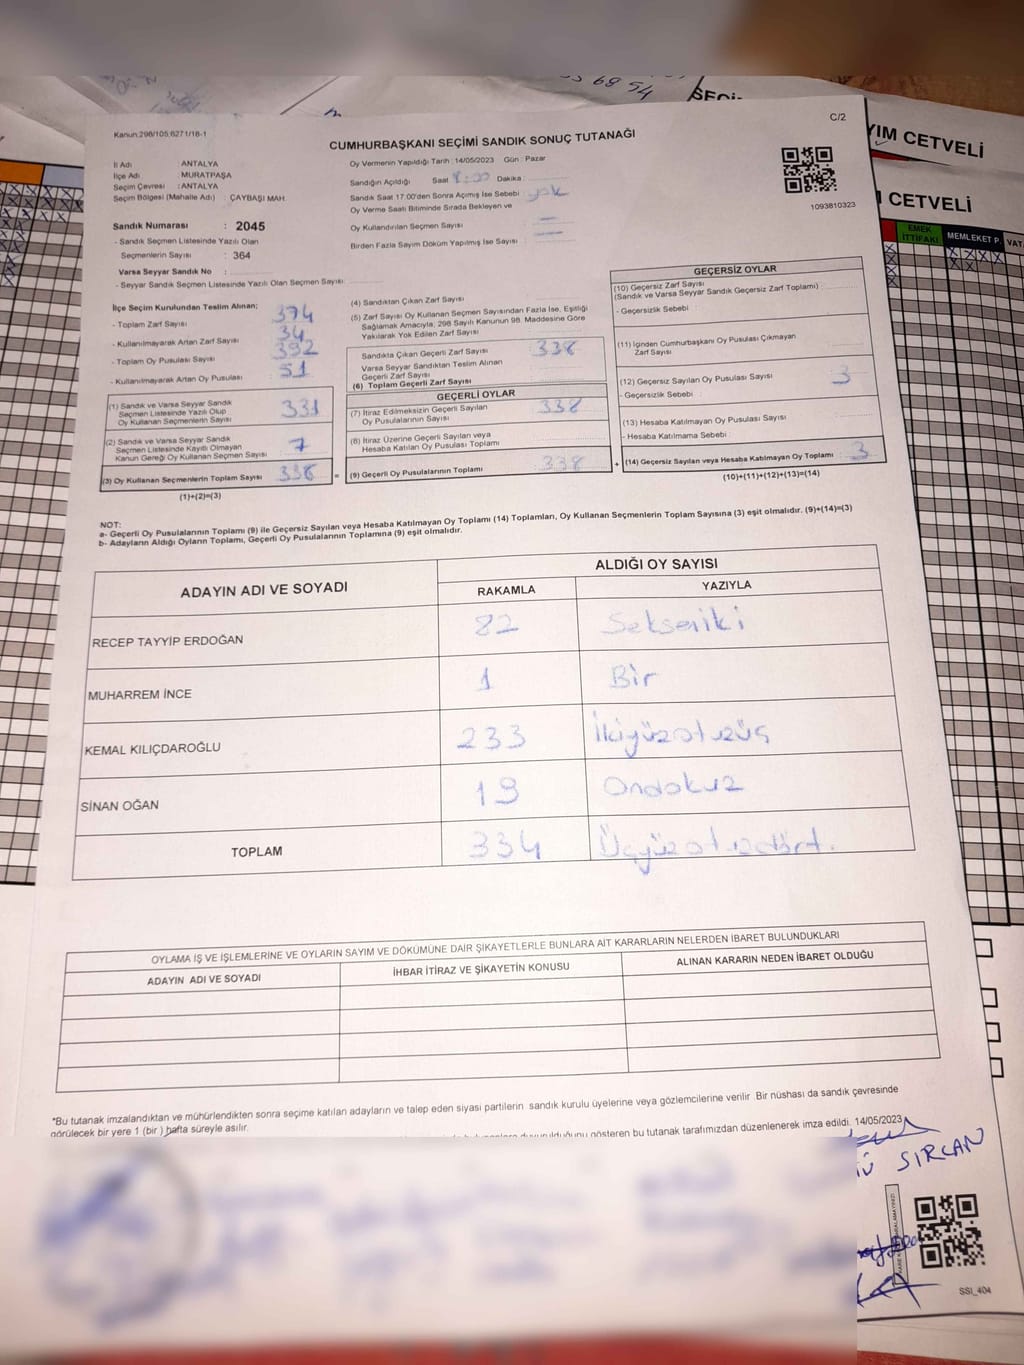 68 54
SEÇİ
YIM CETVELİ
I CETVELİ
EMEK
İTTİFAKI
MEMLEKET P.
VAT
C/2
Kanun:298/105,6271/18-1
CUMHURBAŞKANI SEÇİMİ SANDIK SONUÇ TUTANAĞI
1093810323
İl Adı : ANTALYA
İlçe Adı : MURATPAŞA
Seçim Çevresi : ANTALYA
Seçim Bölgesi (Mahalle Adı) : ÇAYBAŞI MAH.
Oy Vermenin Yapıldığı Tarih : 14/05/2023 Gün : Pazar
Sandığın Açıldığı Saat 8:00 Dakika :
Sandık Saat 17.00'den Sonra Açımış İse Sebebi : yok
Oy Verme Saati Bitiminde Sırada Bekleyen ve
Oy Kullandırılan Seçmen Sayısı : —
Birden Fazla Sayım Döküm Yapılmış İse Sayısı : —
Sandık Numarası : 2045
- Sandık Seçmen Listesinde Yazılı Olan
Seçmenlerin Sayısı : 364
Varsa Seyyar Sandık No :
- Seyyar Sandık Seçmen Listesinde Yazılı Olan Seçmen Sayısı:
İlçe Seçim Kurulundan Teslim Alınan;
- Toplam Zarf Sayısı : 374
- Kullanılmayarak Artan Zarf Sayısı : 34
- Toplam Oy Pusulası Sayısı : 392
- Kullanılmayarak Artan Oy Pusulası : 51
(1) Sandık ve Varsa Seyyar Sandık
Seçmen Listesinde Yazılı Olup
Oy Kullanan Seçmenlerin Sayısı : 331
(2) Sandık ve Varsa Seyyar Sandık
Seçmen Listesinde Kayıtlı Olmayan
Kanun Gereği Oy Kullanan Seçmen Sayısı : 7
(3) Oy Kullanan Seçmenlerin Toplam Sayısı : 338
(1)+(2)=(3)
(4) Sandıktan Çıkan Zarf Sayısı
(5) Zarf Sayısı Oy Kullanan Seçmen Sayısından Fazla İse, Eşitliği
Sağlamak Amacıyla, 298 Sayılı Kanunun 98. Maddesine Göre
Yakılarak Yok Edilen Zarf Sayısı
Sandıkta Çıkan Geçerli Zarf Sayısı : 338
Varsa Seyyar Sandıktan Teslim Alınan
Geçerli Zarf Sayısı
(6) Toplam Geçerli Zarf Sayısı
GEÇERLİ OYLAR
(7) İtiraz Edilmeksizin Geçerli Sayılan
Oy Pusulalarının Sayısı : 338
(8) İtiraz Üzerine Geçerli Sayılan veya
Hesaba Katılan Oy Pusulası Toplamı
= (9) Geçerli Oy Pusulalarının Toplamı : 338
GEÇERSİZ OYLAR
(10) Geçersiz Zarf Sayısı
(Sandık ve Varsa Seyyar Sandık Geçersiz Zarf Toplamı) :
- Geçersizlik Sebebi :
(11) İçinden Cumhurbaşkanı Oy Pusulası Çıkmayan
Zarf Sayısı
(12) Geçersiz Sayılan Oy Pusulası Sayısı : 3
- Geçersizlik Sebebi :
(13) Hesaba Katılmayan Oy Pusulası Sayısı
- Hesaba Katılmama Sebebi :
+ (14) Geçersiz Sayılan veya Hesaba Katılmayan Oy Toplamı : 3
(10)+(11)+(12)+(13)=(14)
NOT:
a- Geçerli Oy Pusulalarının Toplamı (9) ile Geçersiz Sayılan veya Hesaba Katılmayan Oy Toplamı (14) Toplamları, Oy Kullanan Seçmenlerin Toplam Sayısına (3) eşit olmalıdır. (9)+(14)=(3)
b- Adayların Aldığı Oyların Toplamı, Geçerli Oy Pusulalarının Toplamına (9) eşit olmalıdır.
ADAYIN ADI VE SOYADI
ALDIĞI OY SAYISI
RAKAMLA YAZIYLA
RECEP TAYYİP ERDOĞAN 82 Sekseniki
MUHARREM İNCE 1 Bir
KEMAL KILIÇDAROĞLU 233 İkiyüzotuzüç
SİNAN OĞAN 19 Ondokuz
TOPLAM 334 Üçyüzotuzdört.
OYLAMA İŞ VE İŞLEMLERİNE VE OYLARIN SAYIM VE DÖKÜMÜNE DAİR ŞİKAYETLERLE BUNLARA AİT KARARLARIN NELERDEN İBARET BULUNDUKLARI
ADAYIN ADI VE SOYADI İHBAR İTİRAZ VE ŞİKAYETİN KONUSU ALINAN KARARIN NEDEN İBARET OLDUĞU
*Bu tutanak imzalandıktan ve mühürlendikten sonra seçime katılan adayların ve talep eden siyasi partilerin sandık kurulu üyelerine veya gözlemcilerine verilir. Bir nüshası da sandık çevresinde
görülecek bir yere 1 (bir) hafta süreyle asılır.
duyurulduğunu gösteren bu tutanak tarafımızdan düzenlenerek imza edildi. 14/05/2023
SIRCAN
SSI_404